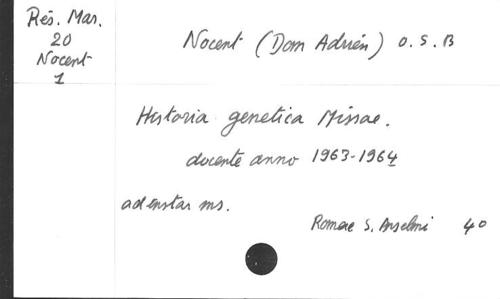 Rés. Mar.
20
Nocent
1
Nocent (Dom Adrien) O. S. B
Historia genetica Missae.
docente anno 1963-1964
ad instar ms.
Romae S. Anselmi 40